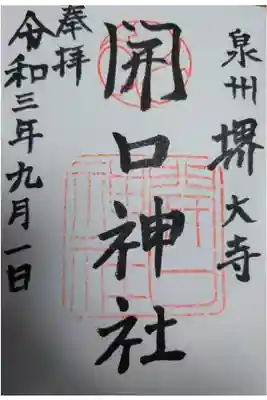 泉州堺大寺
開口神社
奉拝
令和三年九月一日